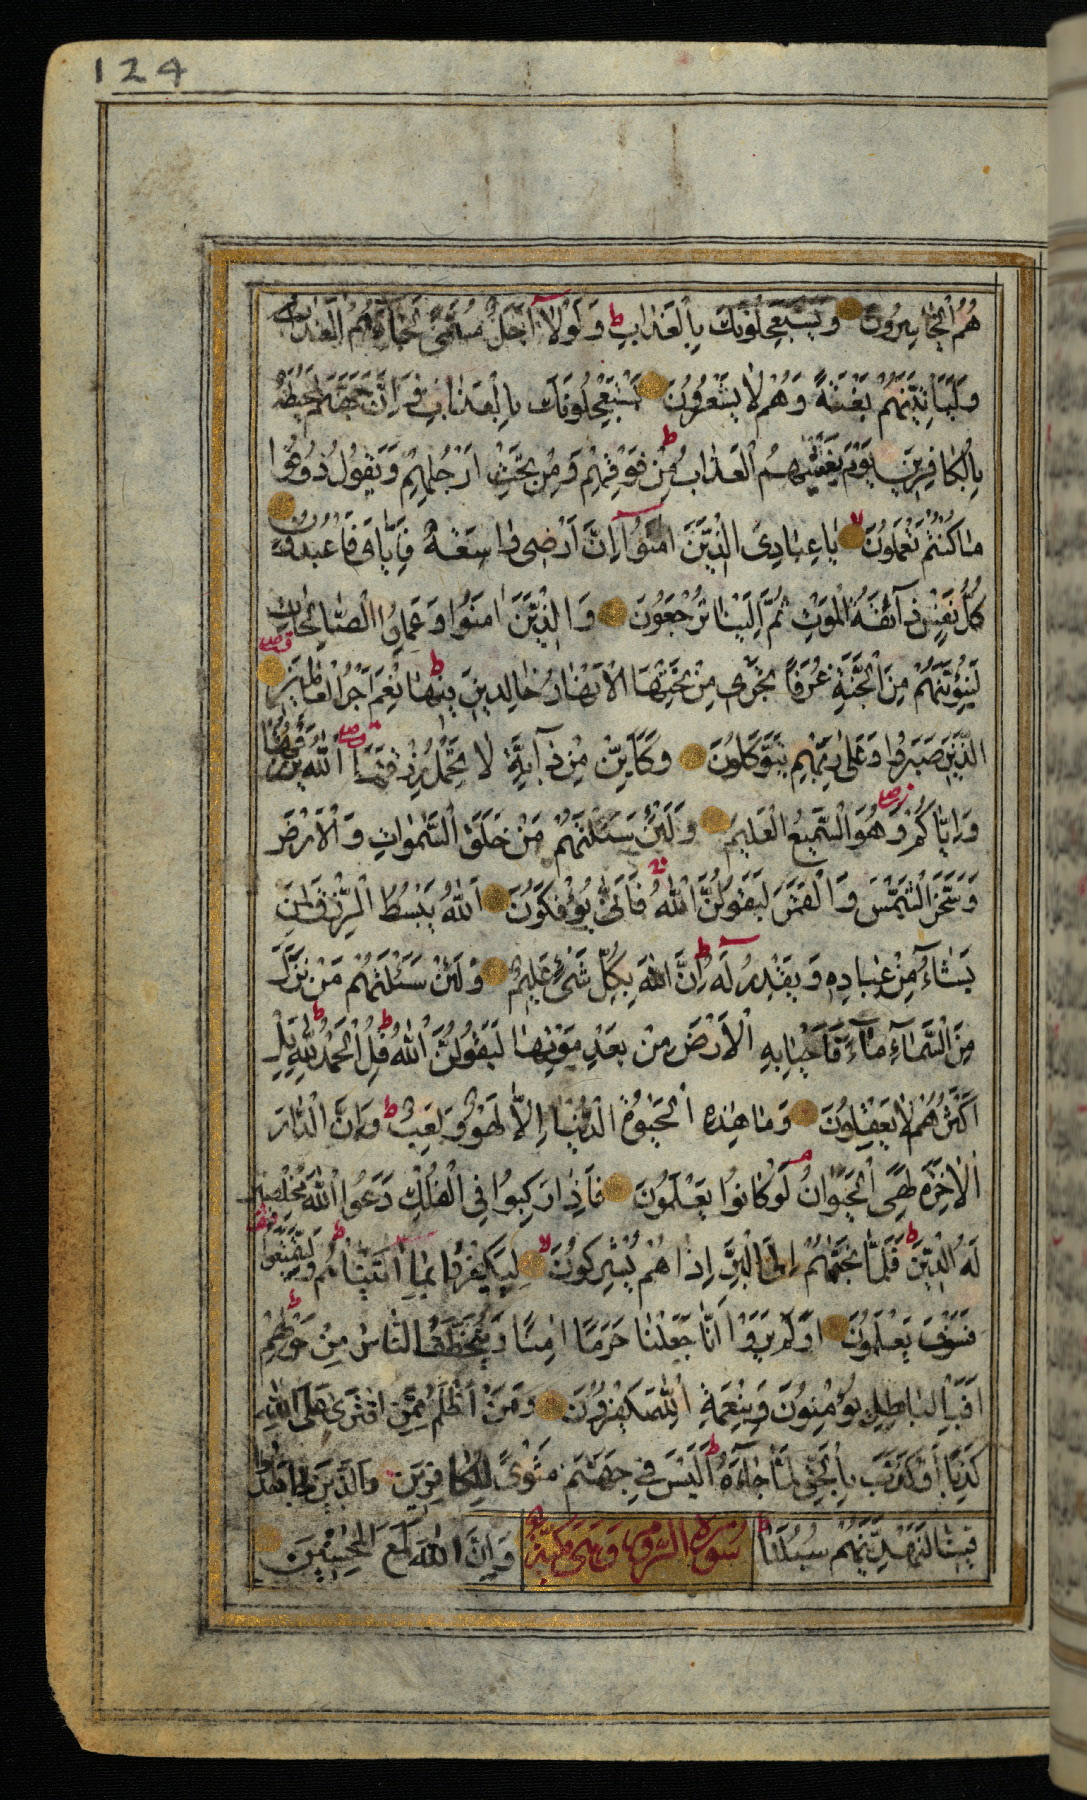 124
هُمُ الْخَاسِرُونَ وَيَسْتَعْجِلُونَكَ بِالْعَذَابِ ط وَلَوْلَا أَجَلٌ مُسَمًّى لَجَاءَهُمُ الْعَذَابُ
وَلَيَأْتِيَنَّهُمْ بَغْتَةً وَهُمْ لَا يَشْعُرُونَ يَسْتَعْجِلُونَكَ بِالْعَذَابِ وَإِنَّ جَهَنَّمَ لَمُحِيطَةٌ
بِالْكَافِرِينَ يَوْمَ يَغْشَيٰهُمُ الْعَذَابُ مِنْ فَوْقِهِمْ وَمِنْ تَحْتِ أَرْجُلِهِمْ وَيَقُولُ ذُوقُوا
مَا كُنْتُمْ تَعْمَلُونَ لا يَا عِبَادِيَ الَّذِينَ آمَنُوا إِنَّ أَرْضِي وَاسِعَةٌ فَإِيَّايَ فَاعْبُدُونِ
كُلُّ نَفْسٍ ذَآئِقَةُ الْمَوْتِ ثُمَّ إِلَيْنَا تُرْجَعُونَ وَالَّذِينَ آمَنُوا وَعَمِلُوا الصَّالِحَاتِ
لَنُبَوِّئَنَّهُمْ مِنَ الْجَنَّةِ غُرَفًا تَجْرِي مِنْ تَحْتِهَا الْأَنْهَارُ خَالِدِينَ فِيهَا ط نِعْمَ أَجْرُ الْعَامِلِينَ
الَّذِينَ صَبَرُوا وَعَلَىٰ رَبِّهِمْ يَتَوَكَّلُونَ وَكَأَيِّنْ مِنْ دَآبَّةٍ لَا تَحْمِلُ رِزْقَهَا اللَّهُ يَرْزُقُهَا
وَإِيَّاكُمْ وَهُوَ السَّمِيعُ الْعَلِيمُ وَلَئِنْ سَئَلْتَهُمْ مَنْ خَلَقَ السَّمٰوَاتِ وَالْأَرْضَ
وَسَخَّرَ الشَّمْسَ وَالْقَمَرَ لَيَقُولُنَّ اللَّهُ فَأَنَّىٰ يُؤْفَكُونَ اللَّهُ يَبْسُطُ الرِّزْقَ لِمَنْ
يَشَآءُ مِنْ عِبَادِهِ وَيَقْدِرُ لَهُ ط إِنَّ اللَّهَ بِكُلِّ شَيْءٍ عَلِيمٌ وَلَئِنْ سَئَلْتَهُمْ مَنْ نَزَّلَ
مِنَ السَّمَآءِ مَآءً فَأَحْيَا بِهِ الْأَرْضَ مِنْ بَعْدِ مَوْتِهَا لَيَقُولُنَّ اللَّهُ ط قُلِ الْحَمْدُ لِلَّهِ ط بَلْ
أَكْثَرُهُمْ لَا يَعْقِلُونَ وَمَا هٰذِهِ الْحَيٰوةُ الدُّنْيَا إِلَّا لَهْوٌ وَلَعِبٌ ط وَإِنَّ الدَّارَ
الْآخِرَةَ لَهِيَ الْحَيَوَانُ م لَوْ كَانُوا يَعْلَمُونَ فَإِذَا رَكِبُوا فِي الْفُلْكِ دَعَوُا اللَّهَ مُخْلِصِينَ
لَهُ الدِّينَ ط فَلَمَّا نَجَّاهُمْ إِلَى الْبَرِّ إِذَا هُمْ يُشْرِكُونَ لا لِيَكْفُرُوا بِمَا آتَيْنَاهُمْ وَلِيَتَمَتَّعُوا
فَسَوْفَ يَعْلَمُونَ أَوَلَمْ يَرَوْا أَنَّا جَعَلْنَا حَرَمًا آمِنًا وَيُتَخَطَّفُ النَّاسُ مِنْ حَوْلِهِمْ
أَفَبِالْبَاطِلِ يُؤْمِنُونَ وَبِنِعْمَةِ اللَّهِ يَكْفُرُونَ وَمَنْ أَظْلَمُ مِمَّنِ افْتَرَىٰ عَلَى اللَّهِ
كَذِبًا أَوْ كَذَّبَ بِالْحَقِّ لَمَّا جَآءَهُ ط أَلَيْسَ فِي جَهَنَّمَ مَثْوًى لِلْكَافِرِينَ وَالَّذِينَ جَاهَدُوا
فِينَا لَنَهْدِيَنَّهُمْ سُبُلَنَا ط سُورَةُ الرُّومِ وَهِيَ مَكِّيَّةٌ وَإِنَّ اللَّهَ لَمَعَ الْمُحْسِنِينَ